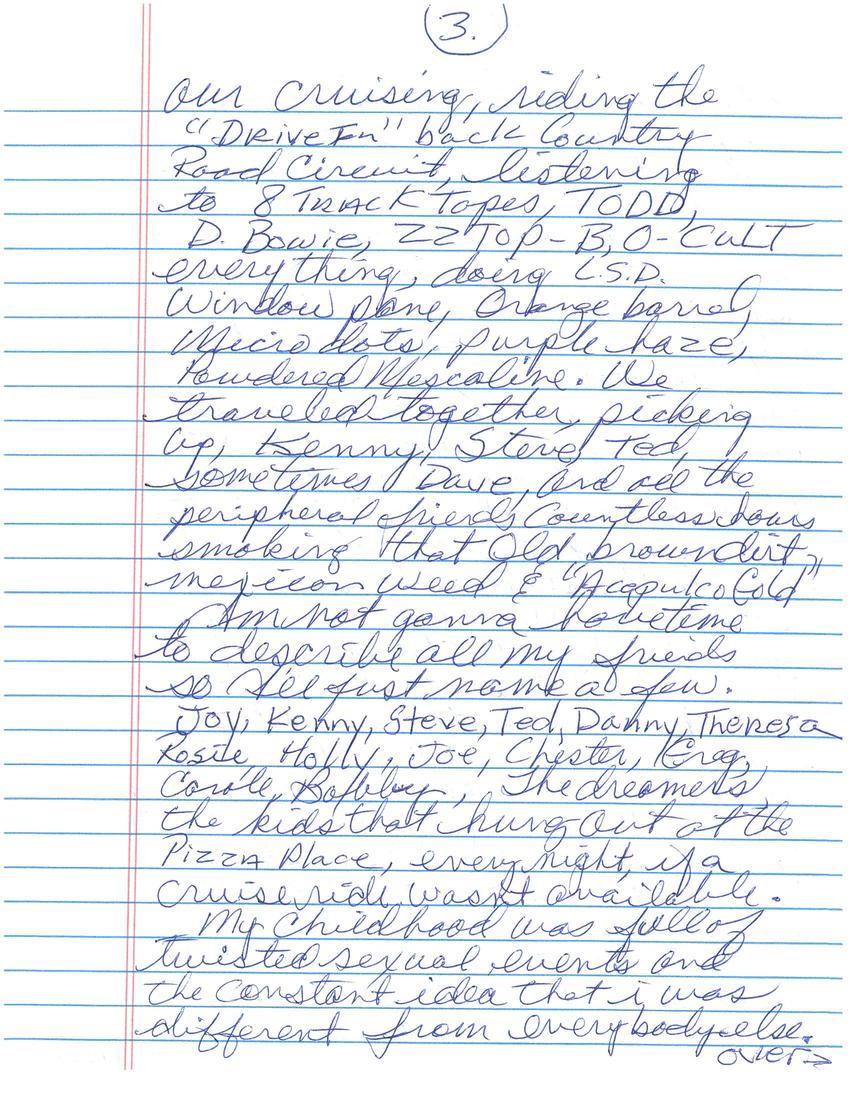 3.
our cruising, riding the
"DRiveIn" back Country
Road Circuit, listening
to 8 TRACK Tapes, TODD,
D. Bowie, ZZ Top - B,O - CuLT
everything, doing L.S.D.
Window pane, Orange barrel,
Micro dots, purple haze,
Powdered Mescaline. We
traveled together, picking
up, Kenny, Steve, Ted,
sometimes Dave, and all the
peripheral friends, Countless hours
smoking that Old brown dirt,
mexican weed & "Acapulco Gold"
Am not gonna have time
to describe all my friends
so I'll just name a few.
Joy, Kenny, Steve, Ted, Danny, Theresa
Rosie, Holly, Joe, Chester, Greg,
Carole, Bobby, The dreamers,
the kids that hung Out at the
PizzA Place, every night, if a
cruise ride wasn't available.
My Childhood was full of
twisted sexual events and
the constant idea that i was
different from everybody else.
over>